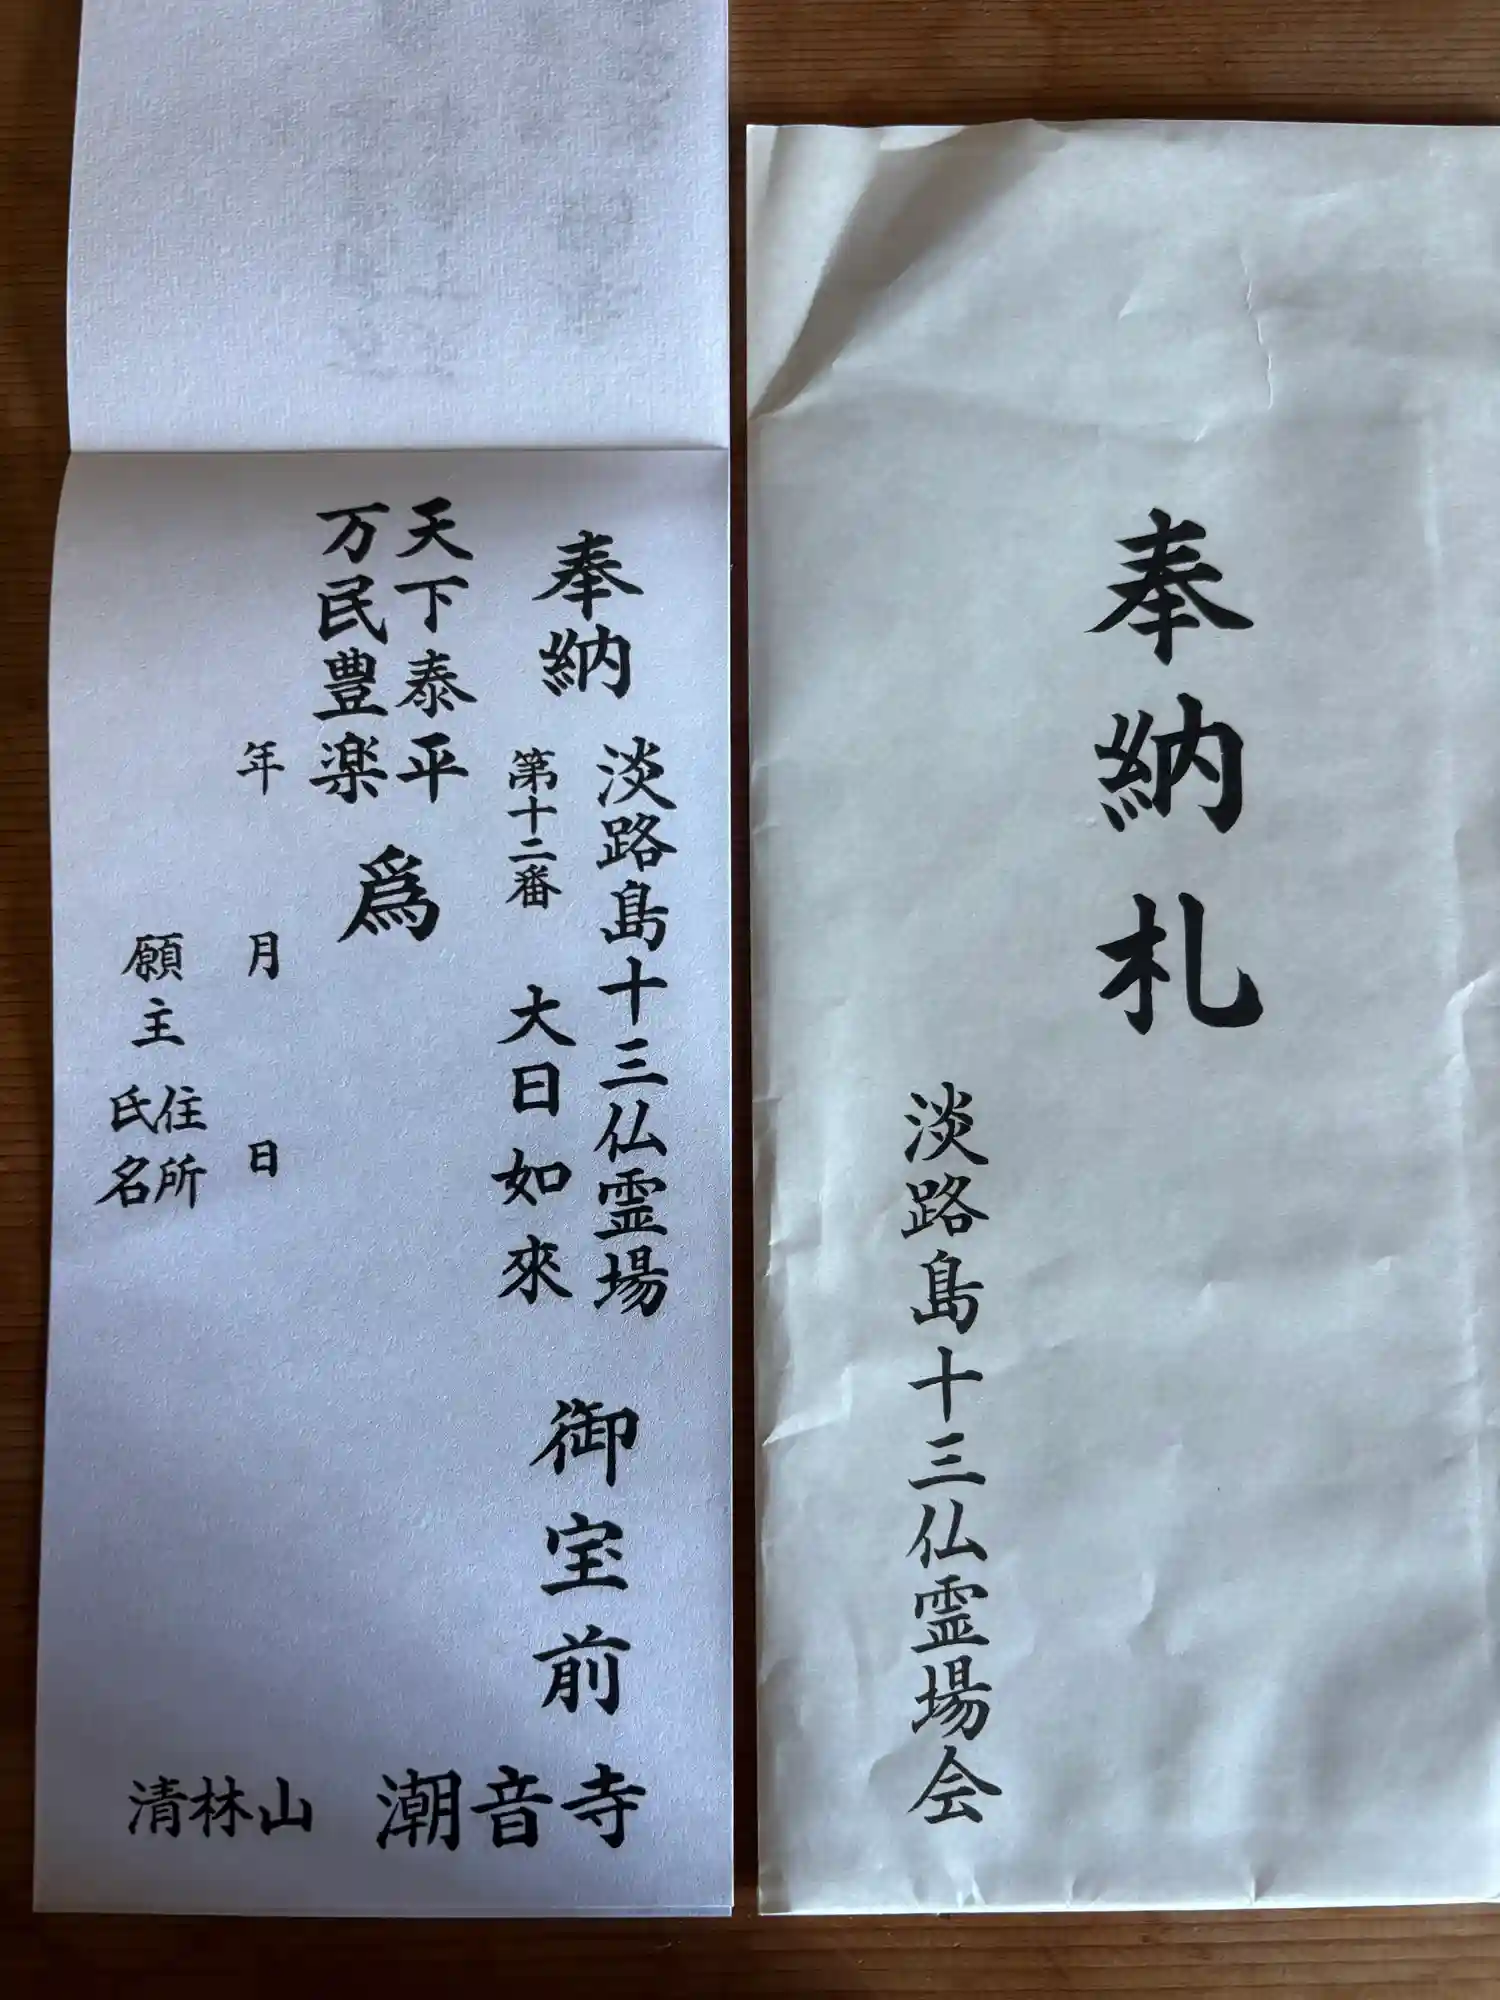 奉納
淡路島十三仏霊場
第十二番 大日如來
御宝前
天下泰平
万民豊楽
爲
年 月 日
願主
住所
氏名
清林山 潮音寺
奉納札
淡路島十三仏霊場会